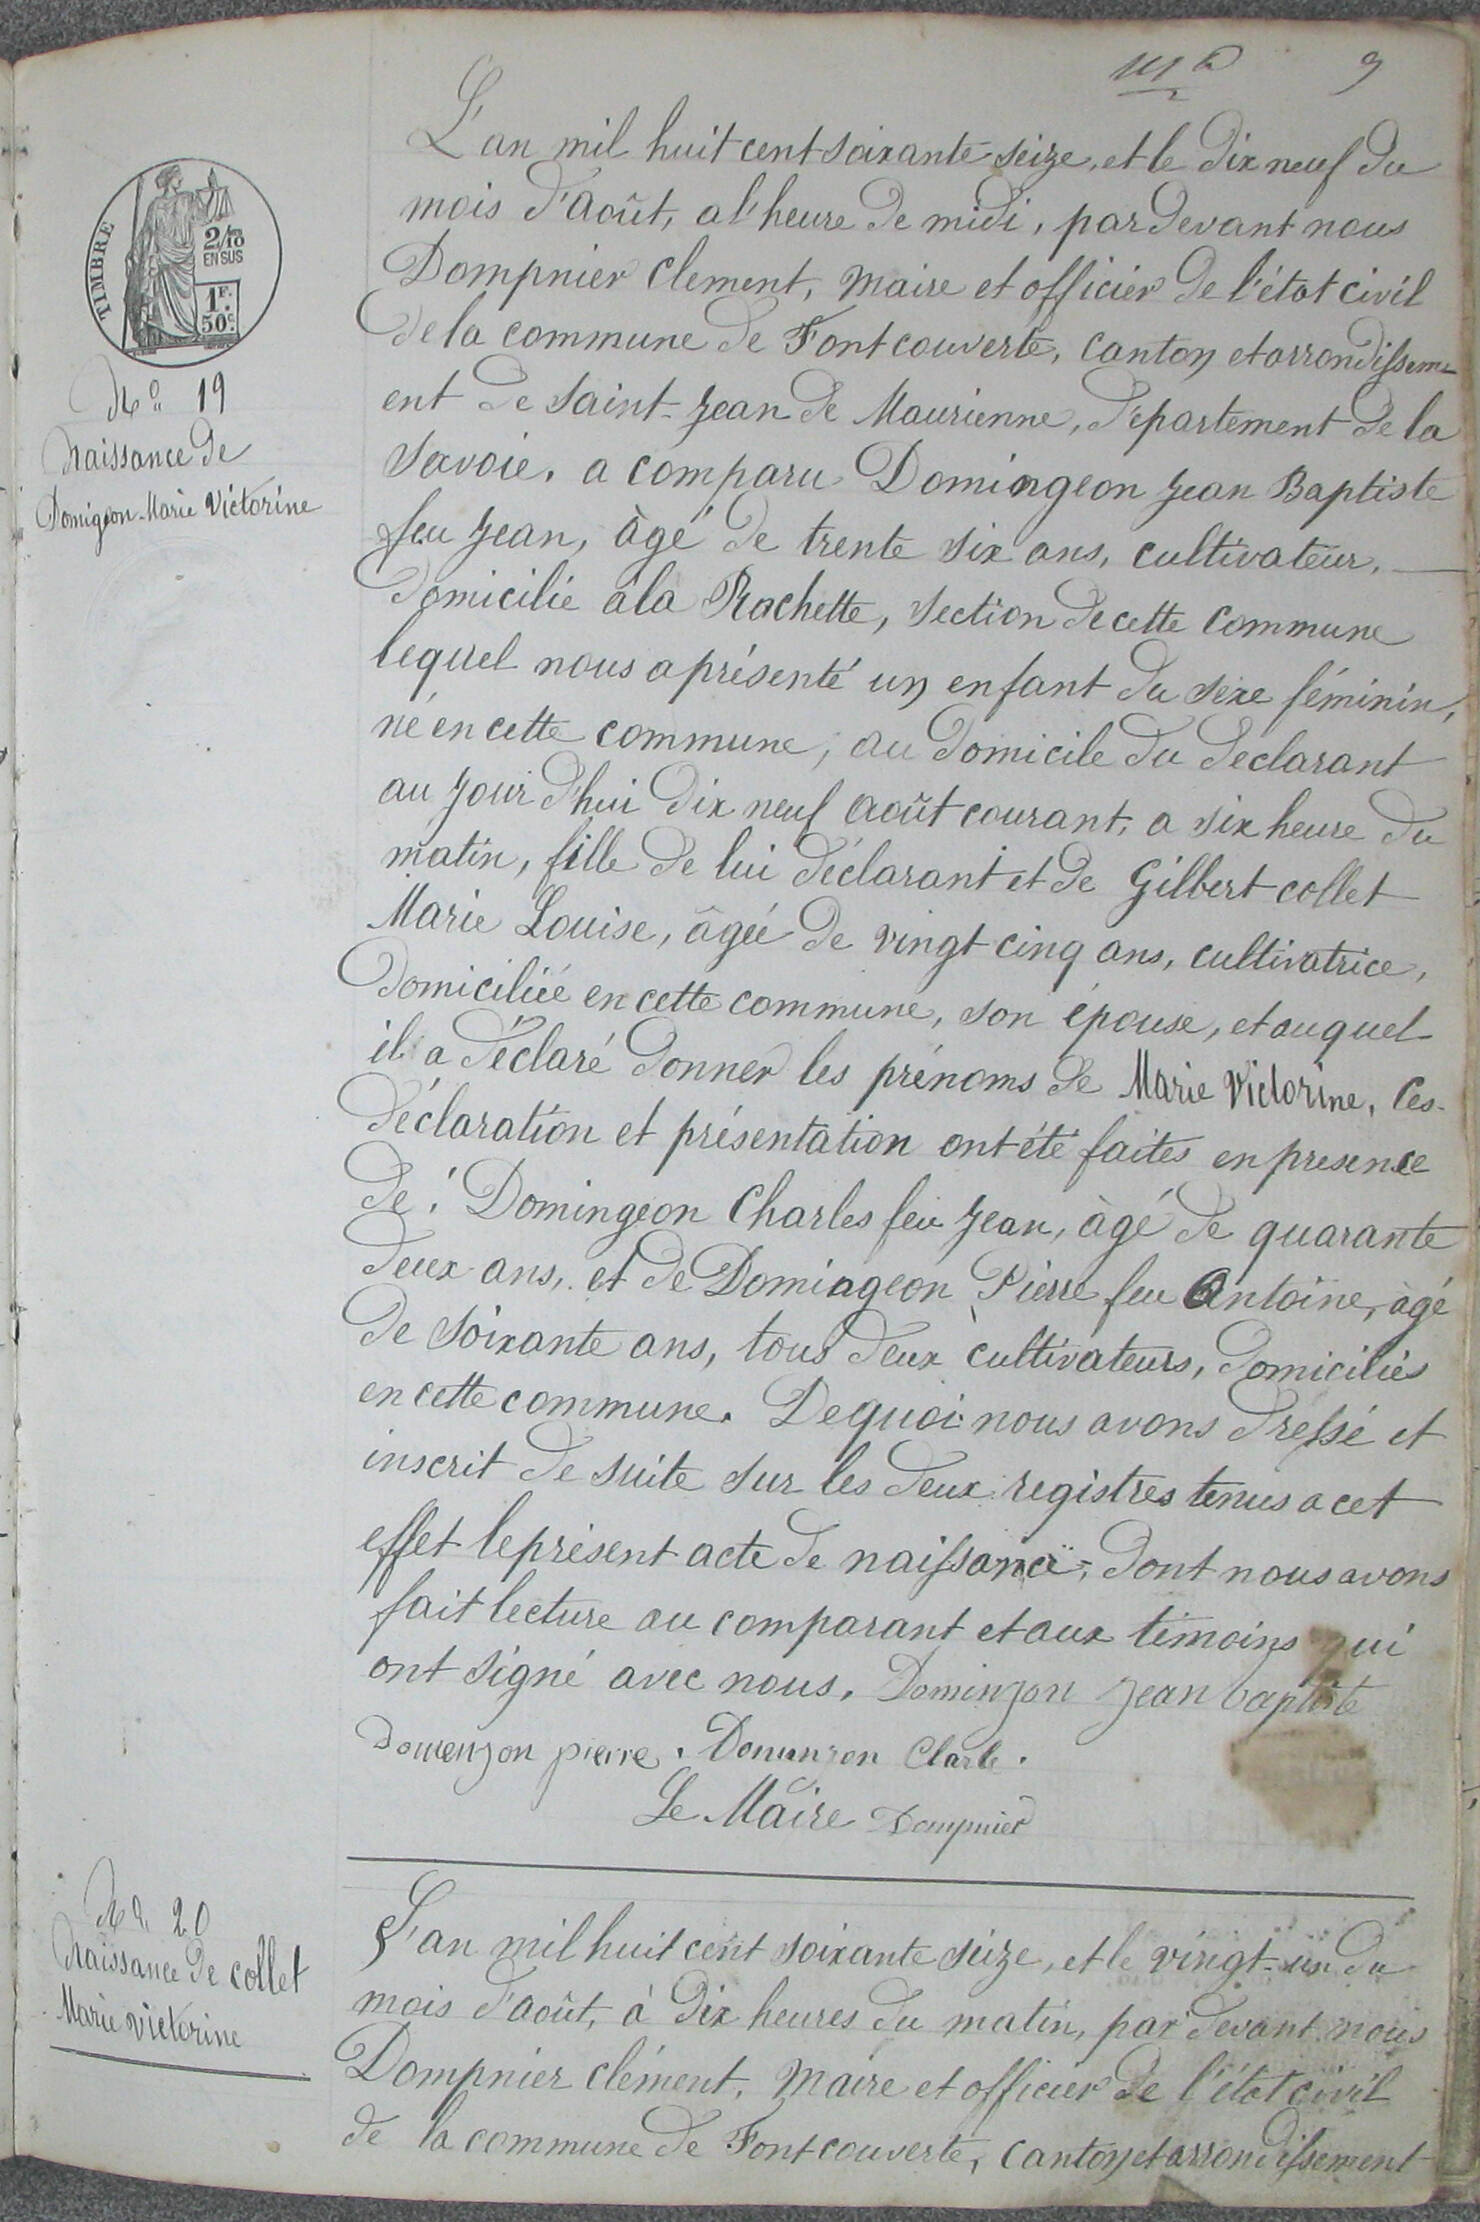 9
L'an mil huit cent soixante seize, et le dix neuf du
mois d'août, a l'heure de midi, par devant nous
Dompnier Clement, maire et officier de l'état civil
de la commune de Fontcouverte, canton et arrondissem-
ent de Saint-Jean de Maurienne, département de la
Savoie, a comparu Domingeon Jean Baptiste
feu Jean, àgé de trente six ans, cultivateur,
domicilié à la Rochette, section de cette commune
lequel nous a présenté un enfant du sexe féminin,
né en cette commune, au domicile du declarant
au jour d'hui dix neuf août courant, a six heure du
matin, fille de lui déclarant et de Gilbert-collet
Marie Louise, âgée de vingt cinq ans, cultivatrice,
domiciliée en cette commune, son épouse, et auquel
il a déclaré donner les prénoms de Marie Victorine. Ces
déclaration et présentation ont été faites en presence
de: Domingeon Charles feu Jean, àgé de quarante
deux ans, et de Domingeon Pierre feu Antoine, àgé
de soixante ans, tous deux cultivateurs, domiciliés
en cette commune. De quoi nous avons dressé et
inscrit de suite sur les deux registres tenus a cet
effet le présent acte de naissance, dont nous avons
fait lecture au comparant et aux témoins qui
ont signé avec nous. Dominjon Jean baptiste
domenjon pierre. Domenjon Charle.
Le Maire Dompnier
TIMBRE
2/10
EN SUS
1F.
50c.
No 19
Naissance de
Domigeon Marie Victorine
No 20
Naissance de collet
Marie victorine
L'an mil huit cent soixante seize, et le vingt-un du
mois d'août, à dix heures du matin, par devant nous
Dompnier clément, maire et officier de l'état civil
de la commune de Fontcouverte, canton et arrondissement